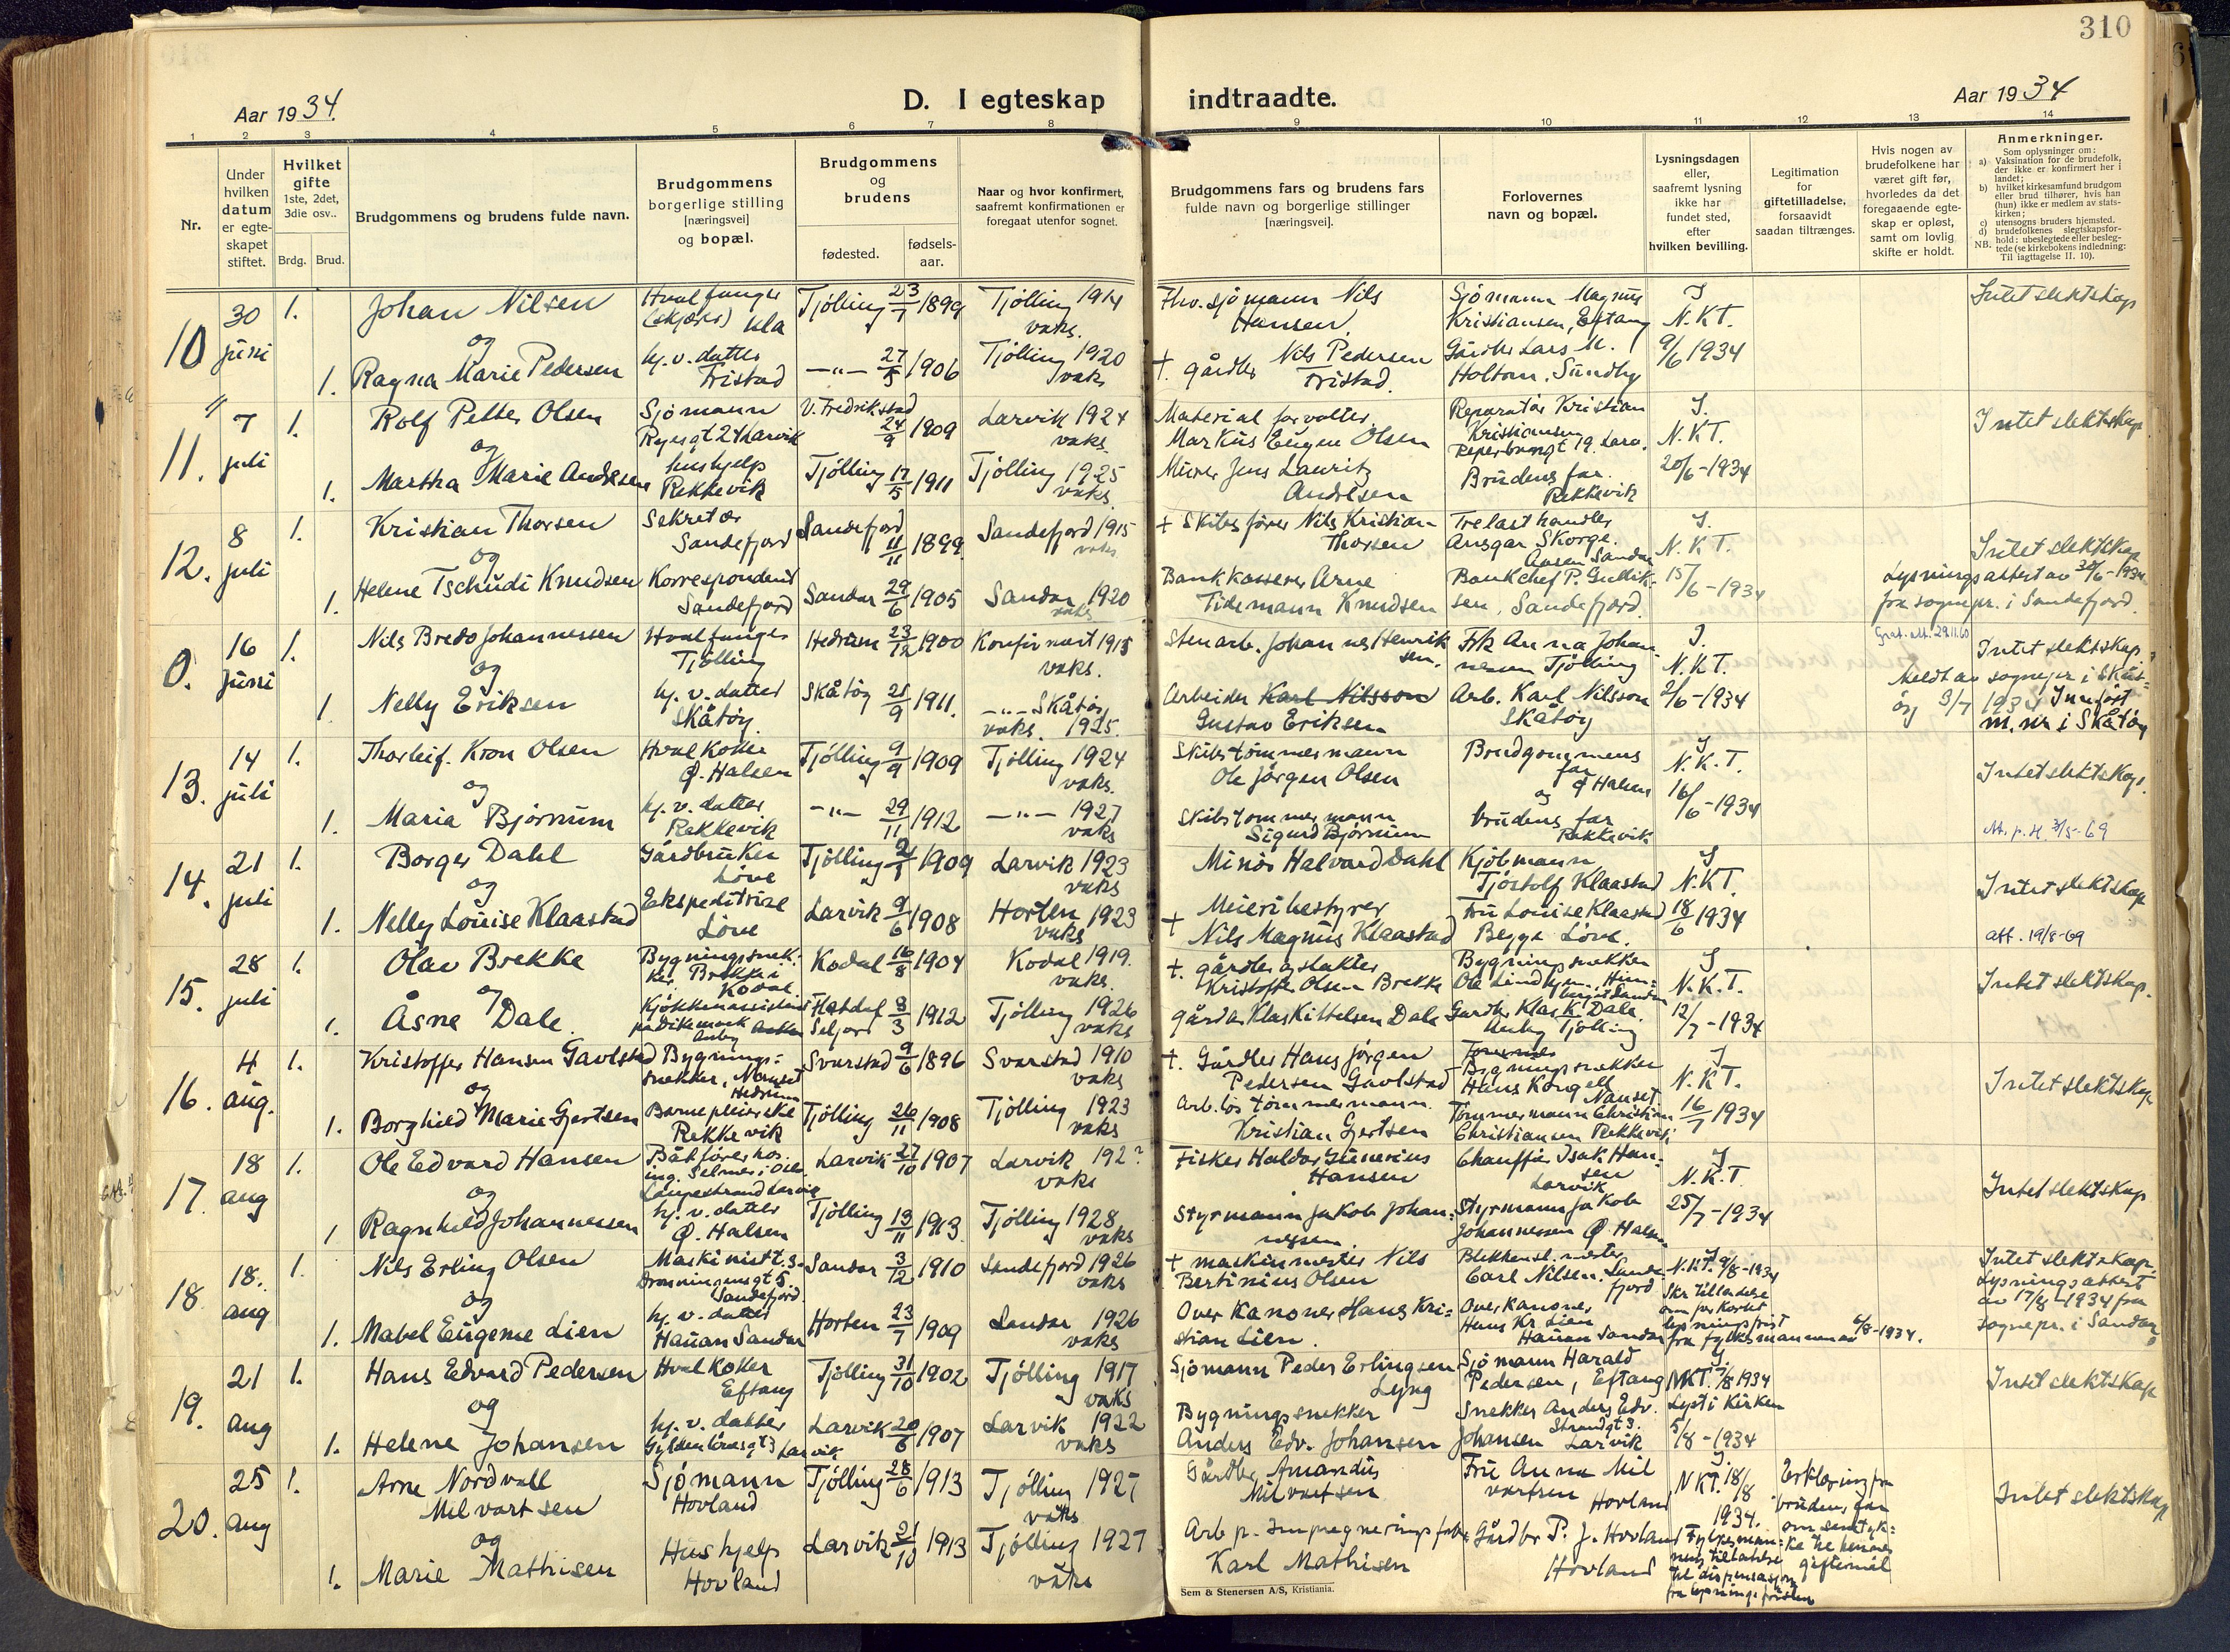 310
Aar 1934.
D. I egteskap
indtraadte.
Aar 1934
1 2 3 4 5 6 7 8 9 10 11 12 13 14
Nr.
Under
hvilken
datum
er egte-
skapet
stiftet.
Hvilket
gifte
1ste, 2det,
3die osv..
Brdg. Brud.
Brudgommens og brudens fulde navn.
Brudgommens
borgerlige stilling
[næringsvei]
og bopæl.
Brudgommens
og
brudens
fødested.
fødsels-
aar.
Naar og hvor konfirmert,
saafremt konfirmationen er
foregaat utenfor sognet.
Brudgommens fars og brudens fars
fulde navn og borgerlige stillinger
[næringsvei].
Forlovernes
navn og bopæl.
Lysningsdagen
eller,
saafremt lysning
ikke har
fundet sted,
efter
hvilken bevilling.
Legitimation
for
giftetilladelse,
forsaavidt
saadan tiltrænges.
Hvis nogen av
brudefolkene har
været gift før,
hvorledes da det
foregaaende egte-
skap er opløst,
samt om lovlig
skifte er holdt.
Anmerkninger.
Som oplysninger om:
a) Vaksination for de brudefolk,
der ikke er konfirmert her i
landet;
b) hvilket kirkesamfund brudgom
eller brud tilhører, hvis han
(hun) ikke er medlem av stats-
kirken;
c) utensogns bruders hjemsted.
d) brudefolkenes slegtskapsfor-
hold: ubeslegtede eller besleg-
NB. tede (se kirkebokens indledning:
Til iagttagelse II. 10).
10
30
juni
1.
Johan Nilsen
og
1. Ragna Marie Pedersen
Hvalfanger
Ula
hj. v. datter
Tristad
Tjølling 23/7 1899
—"— 27/5 1906
Tjølling 1914
vaks.
Tjølling 1920
vaks
Fhv. sjømann Nils
Hansen.
+ gårdbr Nils Pedersen
Tristad.
Sjømann Magnus
Kristiansen, Eftang
Gårdbr Lars M.
Holtom, Sundby
I
N.K.T.
9/6 1934
Intet slektskap
11.
7
juli
1.
Rolf Petter Olsen
og
1. Martha Marie Andresen
Sjømann
Larvik
hushjelp
Rekkevik
V. Fredrikstad
24/9 1909
Tjølling 17/5 1911
Larvik 1924
vaks.
Tjølling 1925
vaks.
Materialforvalter
Markus Eugen Olsen
Murer Jens Lauritz
Andresen
Reparatør Kristian
Kristiansen
Reperbangt 19. Larv.
Brudens far.
Rekkevik
I.
N.K.T.
20/6-1934
Intet slektskap
12.
8
juli
1.
Kristian Thorsen
og
1. Helene Tschudi Knudsen
Sekretær
Sandefjord
Korrespondent
Sandefjord
Sandefjord
11/11 1899
Sandar 29/6 1905
Sandefjord 1915
vaks.
Sandar 1920
vaks
+ Skibsfører Nils Kristian
Thorsen
Bankkasserer Arne
Tidemann Knudsen
Trelasthandler
Ansgar Skorge.
Aasen Sandar
Bankchef P. Gullik-
sen, Sandefjord.
I.
N.K.T.
15/6-1934
Intet slektskap
Lysningsattest av 30/6-1934
fra sognepr. i Sandefjord.
0.
16
juni
1.
Nils Bredo Johannessen
og
1 Nelly Eriksen
Hvalfanger
Tjølling
hj. v. datter
Skåtøy
Hedrum 23/12 1900
Skåtøy 21/9 1911.
Konfirmert 1915
vaks.
—"— Skåtøy
vaks. 1925.
Stenarb. Johannes Henrik
sen.
Arbeider Karl Nilsson
Gustav Eriksen
Frk Anna Johan
nesen Tjølling
Arb. Karl Nilsson
Skåtøy
I.
N.K.T.
2/6-1934
29.11.60
Intet slektskap
Meldt av sognepr i Skåt-
øy 3/7 1934 Innført
m. nr i Skåtøy
13.
14
juli
1.
Thorleif. Kron Olsen
og
1. Maria Bjørnum
Hvalkoker
Ø. Halsen
hj. v. datter
Rekkevik
Tjølling 9/9 1909
—"— 29/11 1912
Tjølling 1924
vaks.
—"— 1927
vaks
Skibstømmermann
Ole Jørgen Olsen
Skibstømmermann
Sigurd Bjørnum
Brudgommens
far
og Ø Halsen
brudens far
Rekkevik
I
N.K.T.
16/6-1934
Intet slektskap.
3/5-69
14.
21
juli
1.
Borger Dahl
og
1. Nelly Louise Klaastad
Gårdbruker
Løve
Ekspeditrise
Løve
Tjølling 1909
Larvik 9/6 1908
Larvik 1923
vaks
Horten 1923
vaks
Minør Halvard Dahl
+ Meieribestyrer
Nils Magnus Klaastad
Kjøbmann
Tjøstolf Klaastad
Fru Louise Klaastad
Begge Løve.
I
N.K.T.
18/6 1934
Intet slektskap
att. 19/8-69
15.
28
juli
1.
Olav Brekke
og
1. Åsne Dale.
Bygningssnek-
ker Brekke i
Kodal
Kjøkkenassistent
Kodal 16/8 1904
Flatdal
Seljord 3/3 1912
Kodal 1919.
vaks.
Tjølling 1926
vaks
+ gårdbr og slakter
Kristoffer Olsen Brekke
gårdbr Klas Kittelsen Dale
Bygningssnekker
Gardbr Klas K. Dale.
Tjølling
I
N.K.T.
12/7-1934
Intet slektskap.
16.
4
aug.
1.
Kristoffer Hansen Gavlstad
og
1. Borghild Marie Gjertsen
Bygnings-
snekker, Nanset
Hedrum
Barnepleierske
Rekkevik
Svarstad 9/6 1896
Tjølling 26/11 1908
Svarstad 1910
vaks
Tjølling 1923
vaks
+. Gårdbr Hans Jørgen
Pedersen Gavlstad
Arb.løs tømmermann.
Kristian Gjertsen
Bygningssnekker
Hans Kongell
Nanset.
Tømmermann Christian
Christiansen Rekkevik
I
N.K.T.
16/7 1934
Intet slektskap
17.
18
aug
1.
Ole Edvard Hansen
og
1 Ragnhild Johannessen
Båtfører hos
ing. Selmer i Oslo.
Langestrand Larvik
hj. v. datter
Ø. Halsen
Larvik 27/10 1907
Tjølling 13/11 1913.
Larvik 192?
vaks
Tjølling 1928
vaks
Fisker Haldor Gunerius
Hansen
Styrmann Jakob Johan-
nessen.
Chauffør Isak Han-
sen
Larvik
Styrmann Jakob
Johannessen Ø. Halsen
I
N.K.T.
25/7-1934
Intet slektskap
18
18.
aug
1.
Nils Erling Olsen
og
1. Mabel Eugenie Lien
Maskinist
Dronningensgt 5.
Sandefjord.
hj. v. datter
Hauan Sandar
Sandar 3/12 1910
Horten 23/7 1909
Sandefjord 1926
vaks
Sandar 1926
vaks
+ maskinmester Nils
Bertinius Olsen
Over Kanoner Hans Kri-
stian Lien.
Carl Nilsen. Sande
fjord
Overkanoner
Hans Kr Lien
Hauan Sandar
I
N.K.T. 9/8-1934
Skr. tilladelse
om forkortet
lysningsfrist
fra fylkesmannen av 6/8-1934.
Intet slektskap.
Lysningsattest
av 17/8-1934 fra
sognepr. i Sandar
19.
21
aug
1.
Hans Edvard Pedersen
og
1. Helene Johansen
Hvalkoker
Eftang
hj. v. datter
Gyldenløvesgt 3 Larvik
Tjølling 31/10 1902
Larvik 20/6 1907
Tjølling 1917
vaks
Larvik 1922
vaks
Sjømann Peder Erlingsen
Lyng
Bygningssnekker
Anders Edv. Johansen
Sjømann Harald
Pedersen, Eftang
Snekker Anders Edv.
Johansen Strandgt 3.
Larvik
I
N.K.T. 1934
Lyst i kirken
5/8-1934
Intet slektskap
20.
25
aug
1.
Arne Nordvall
Milvartsen
og
1. Marie Mathisen
Sjømann
Hovland
Hushjelp
Hovland
Tjølling 28/6 1913
Larvik 21/10 1913
Tjølling 1927
vaks
Tjølling 1927
vaks
Gårdbr Amandus
Milvartsen
Arb p. Impregneringsfabr.
Karl Mathisen
Fru Anna Mil
vartsen
Hovland
Gårdbr P. J. Hovland
Hovland
I.
N.K.T. 18/8
1934.
Fylkesman-
nens tilladelse
til dispensasjon
fra lysningsfristen
Erklæring fra
brudens far
om samtyk-
ke til hennes
giftermål
Intet slektskap
Sem & Stenersen A/S, Kristiania.